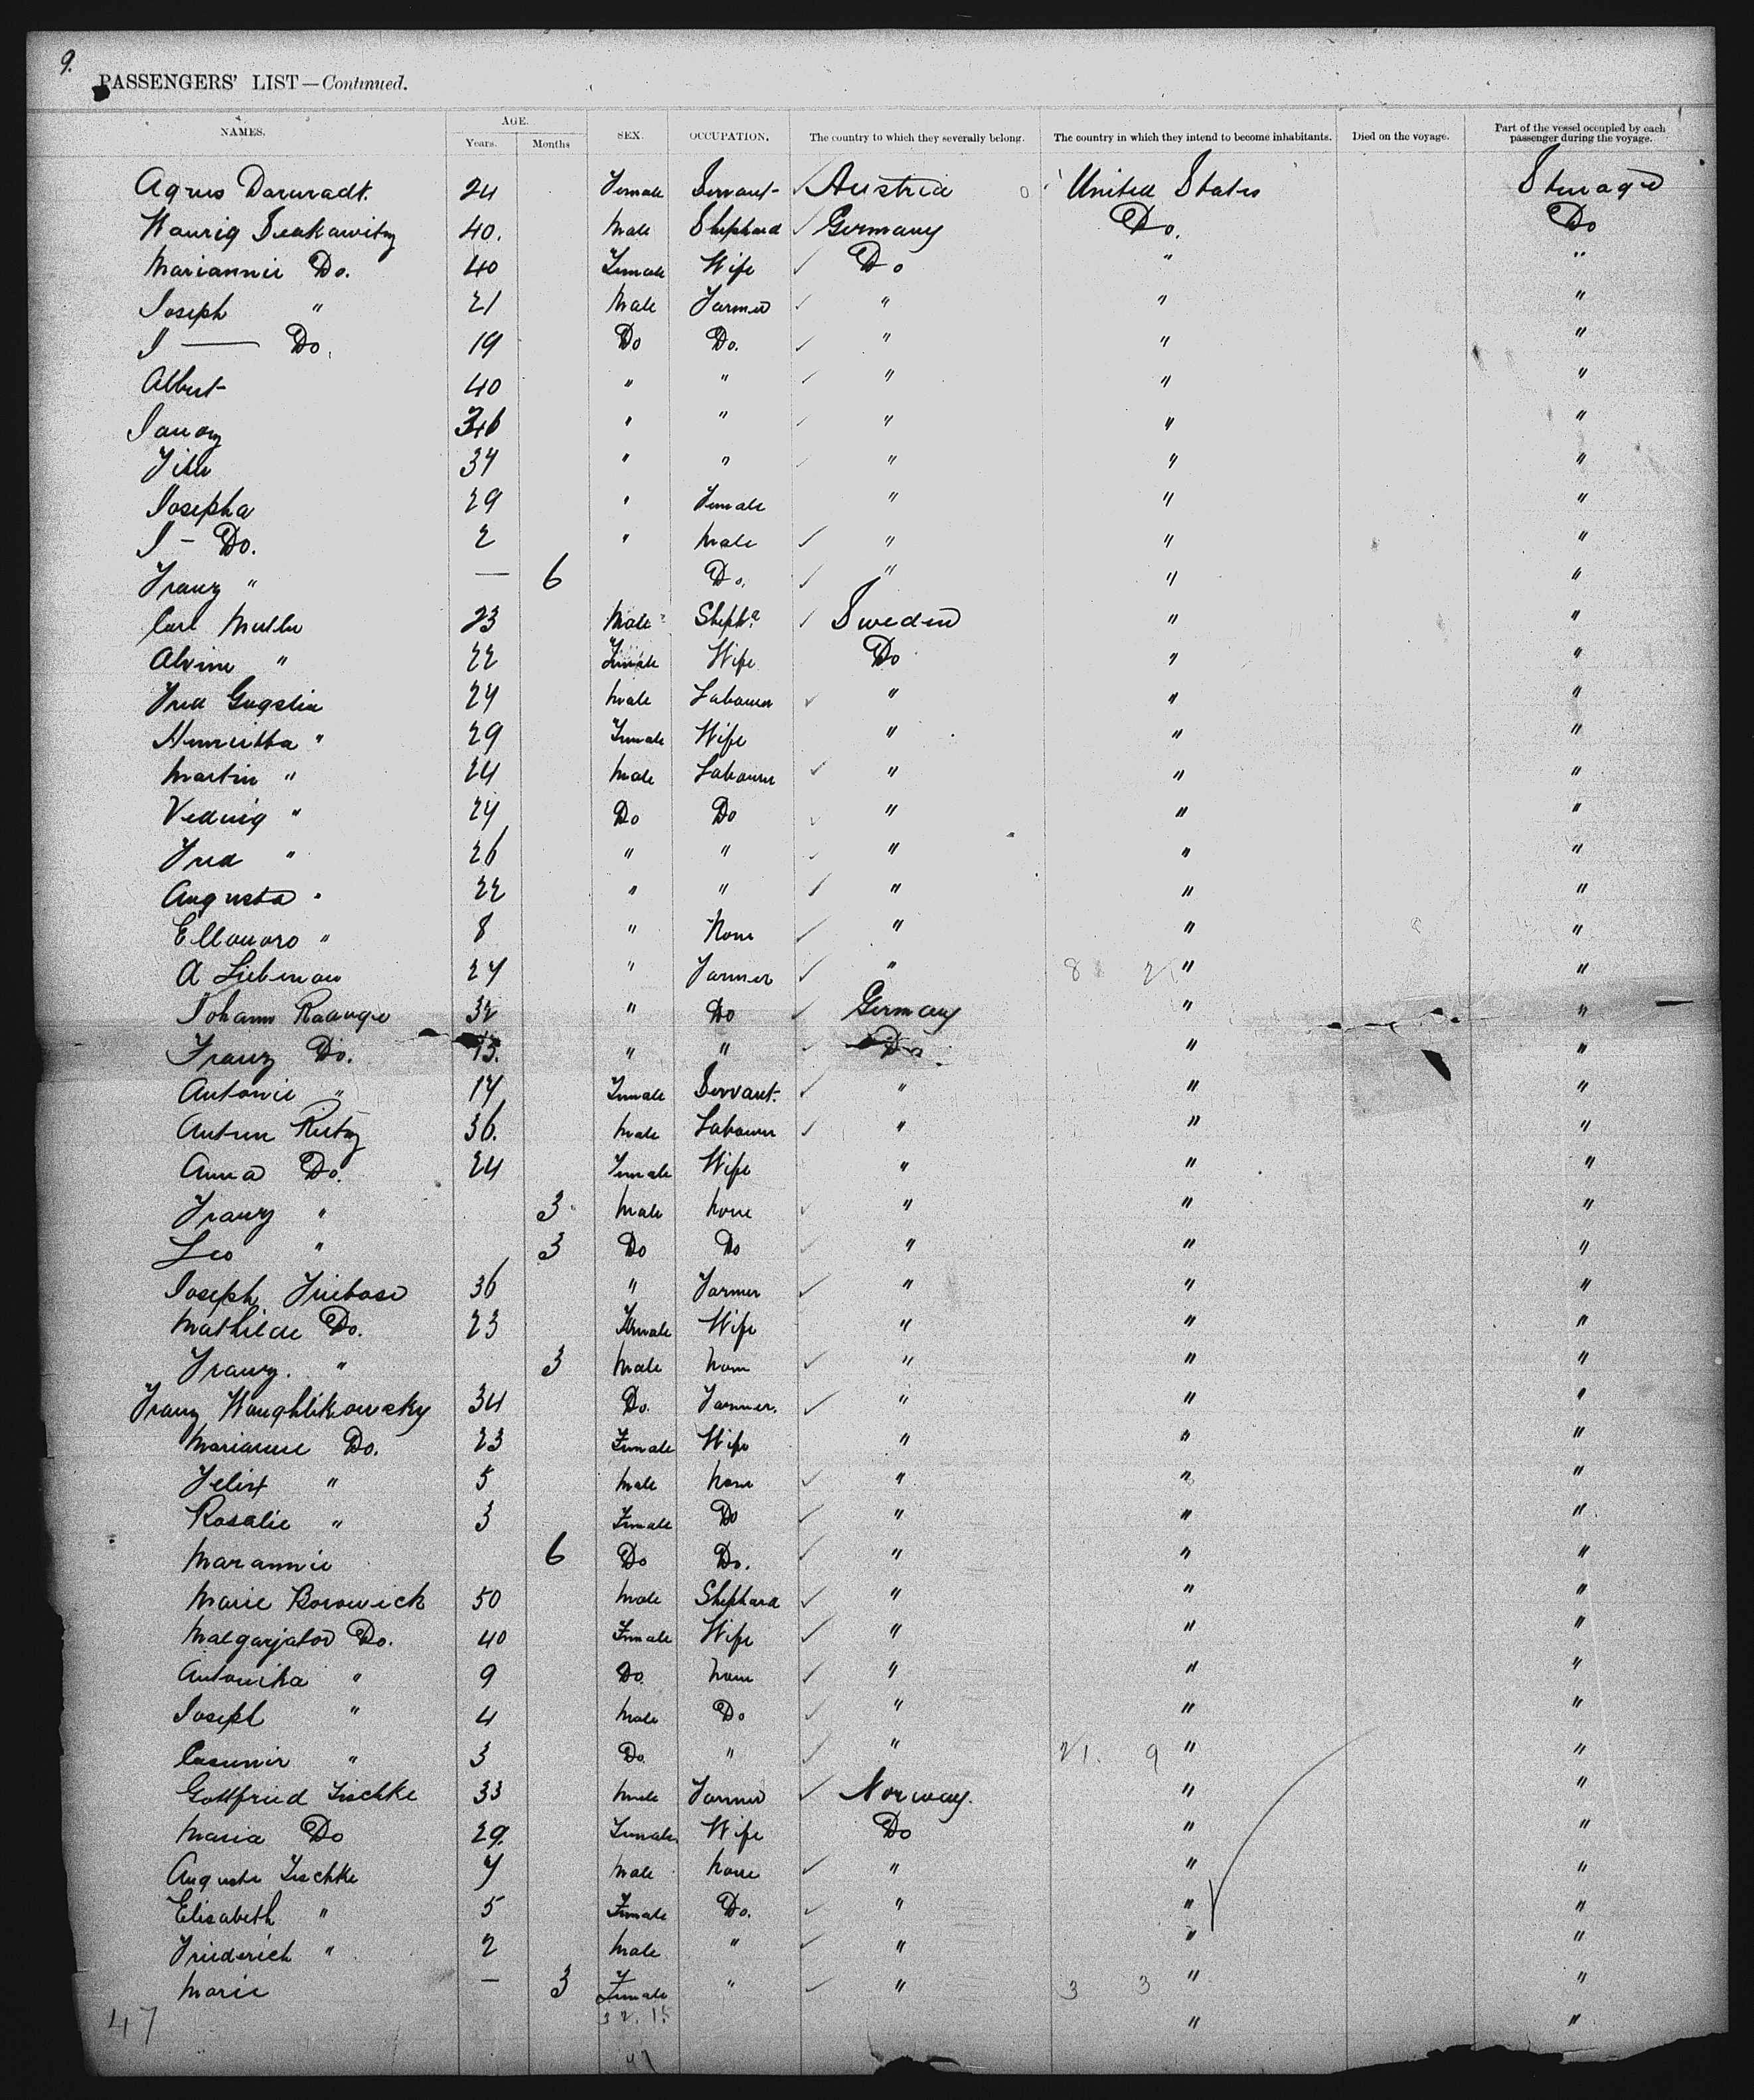 9.
PASSENGERS' LIST—Continued.
NAMES. AGE. Years. Months SEX. OCCUPATION. The country to which they severally belong. The country in which they intend to become inhabitants. Died on the voyage. Part of the vessel occupied by each passenger during the voyage.
Agnes 24 Female Servant Austria United States Sterage
40. Male Shephard Germany Do. Do
Mariannie Do. 40 Female Wife Do " "
Joseph " 21 Male Farmer " " "
J — Do. 19 Do Do. " " "
Albert 40 " " " " "
" " " " "
" " " " "
Josepha 29 " Female " " "
J — Do. 2 " Male " " "
Franz " — 6 Do. " " "
Carl Muller 23 Male Shephd Sweden " "
Alvine " 22 Female Wife Do " "
Fred 27 Male Labourer " " "
Henrietta " 29 Female Wife " " "
Martin " 24 Male Labourer " " "
" 27 Do Do " " "
Fred " 26 " " " " "
Augusta " 22 " " " " "
" 8 " None " " "
A Liebenow 27 " Farmer " 8 2 " "
Johann 32 " Do Germany " "
Franz Do. 15. " " Do " "
Antonie " 17 Female Servant " " "
36. Male Labourer " " "
Anna Do. 24 Female Wife " " "
Franz " 3 Male None " " "
Leo " 3 Do Do " " "
Joseph 36 " Farmer " " "
Mathilde Do. 23 Female Wife " " "
Franz. " 3 Male None " " "
Franz 34 Do. Farmer. " " "
Marianne Do. 23 Female Wife " " "
Felix " 5 Male None " " "
Rosalie " 3 Female Do " " "
Marannie 6 Do Do. " " "
Marie Borowick 50 Male Shephard " " "
Do. 40 Female Wife " " "
Antonika " 9 Do. None " " "
Joseph " 4 Male Do " " "
Casimir " 3 Do " " 21. 9 " "
Gottfried Zischke 33 Male Farmer Norway. " "
Maria Do 29. Female Wife Do " "
Auguste Zischke 7 Male None " " "
Elisabeth " 5 Female Do. " " "
Friederich " 2 Male " " " "
Marie — 3 Female " " 3 3 " "
47 32. 15 " "
47